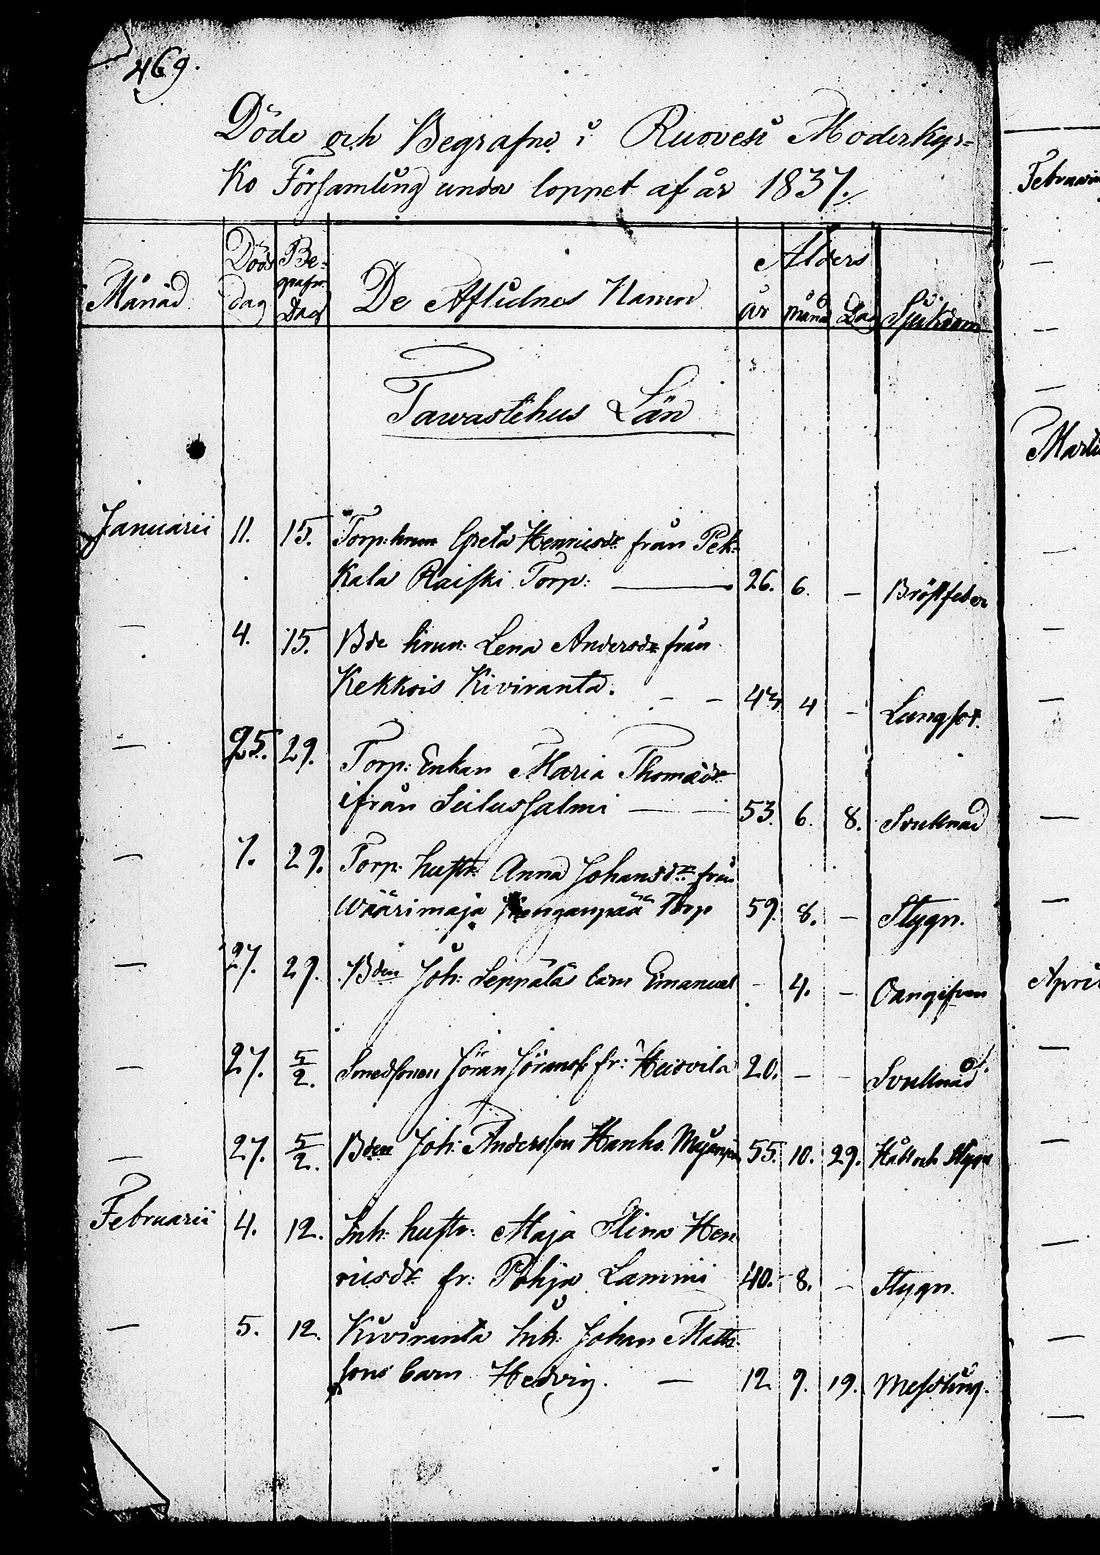 469.
Döde och Begrafne i Ruovesi Moderkyr-
ko Församling under loppet af år 1837.
Månad Döds dag Be- grafn. Dag De Aflidnes Namn Ålders år månad Dag Sjukdom
Tawastehus Län
Januarii 11. 15. Torp: hrun Greta Henricsdr från Pek-
kala Raiski Torp: 26. 6. — Bröstfeber
— 4. 15. Bde hrun: Lena Andersdr från
Kekkois Kiviranta. — — 43 4 — Lungsot.
— 25. 29. Torp: Enkan Maria Thomädr
ifrån Seilussalmi — — 53 6. 8. Svullnad
— 7. 29. Torp: hustr: Anna Johansdr från
Wäärimaja Torp 59. 8. — Stygn.
— 27. 29. Bden Joh: Seppälä barn Emanuel — 4. — Oangifven
— 27. 5/2. Smedsonen Jöran Jöransf. fr: 20. — — Svullnad
— 27. 5/2. Bden Joh: Andersson Hanho 55. 10. 29. Håll och Stygn
Februarii 4. 12. Inh: hustr: Maja Stina Hen
ricsdr fr: Pohja Lammi 40. 8. — Stygn.
— 5. 12. Kiviranta Inh: Johan Matts
sons barn Hedvig. — 12 9. 19. Messling.
Februarii
—
—
—
Marti
—
—
—
—
—
Apri
—
—
—
—
—
—